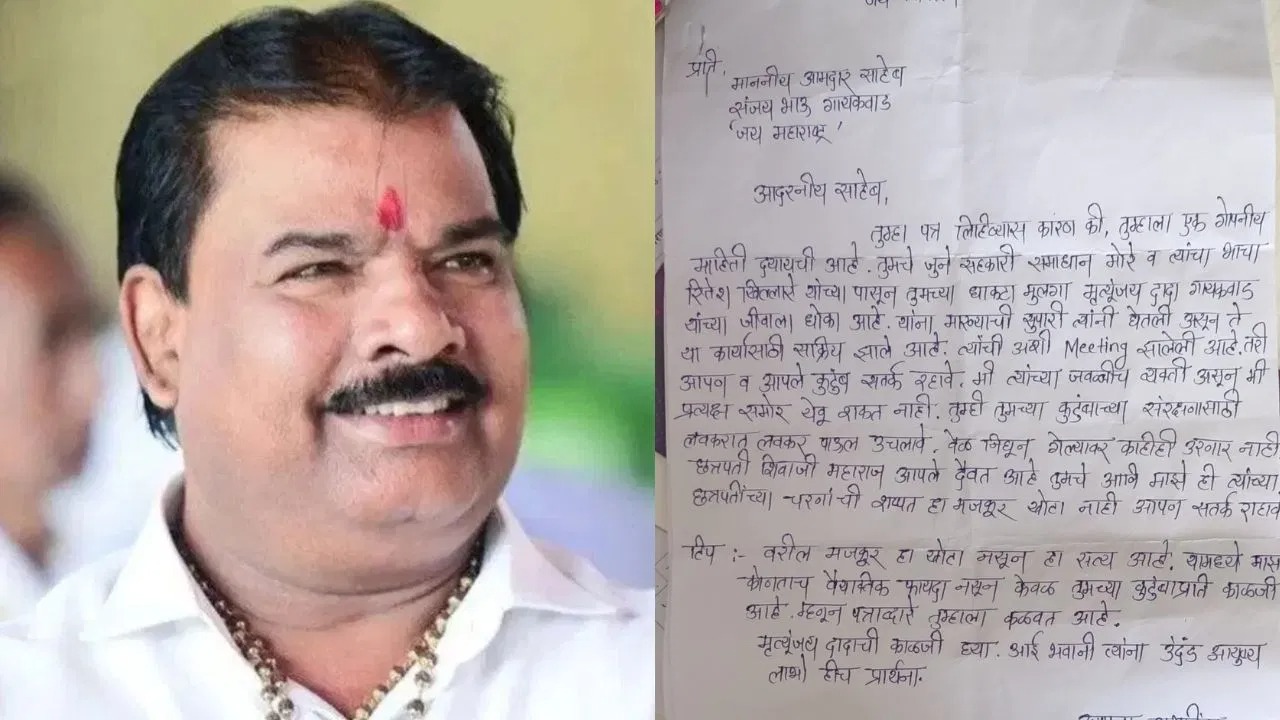 जय
प्रति,
माननीय आमदार साहेब
संजय भाऊ गायकवाड
'जय महाराष्ट्र'
आदरनीय साहेब,
तुम्हा पत्र लिहिण्यास कारण की, तुम्हाला एक गोपनीय
माहिती द्यायची आहे. तुमचे जुने सहकारी समाधान मोरे व त्यांचा भाचा
रितेश खिल्लारे यांच्या पासून तुमच्या धाकटा मुलगा मृत्यूंजय दादा गायकवाड
यांच्या जीवाला धोका आहे. यांना मारण्याची सुपारी त्यांनी घेतली असून ते
या कार्यासाठी सक्रिय झाले आहे. त्यांची अशी Meeting झालेली आहे. तरी
आपण व आपले कुटुंब सतर्क रहावे. मी त्यांच्या जवळचीच व्यक्ती असून मी
प्रत्यक्ष समोर येवू शकत नाही. तुम्ही तुमच्या कुटुंबाच्या संरक्षणासाठी
लवकरात लवकर पाऊल उचलावे. वेळ निघून गेल्यावर काहीही उरणार नाही
छत्रपती शिवाजी महाराज आपले दैवत आहे तुमचे आणि माझे ही त्यांच्या
छत्रपतींच्या चरणांची शप्पत हा मजकूर खोटा नाही आपण सतर्क राहाव
टिप :- वरील मजकूर हा खोटा नसून हा सत्य आहे. यामध्ये माझ
कोणताच वैयक्तिक फायदा नसून केवळ तुमच्या कुटुंबाप्रति काळजी
आहे. म्हणून पत्राव्दारे तुम्हाला कळवत आहे.
मृत्यूंजय दादाची काळजी घ्या. आई भवानी त्यांना उदंड आयुष्य
लाभो हीच प्रार्थना.